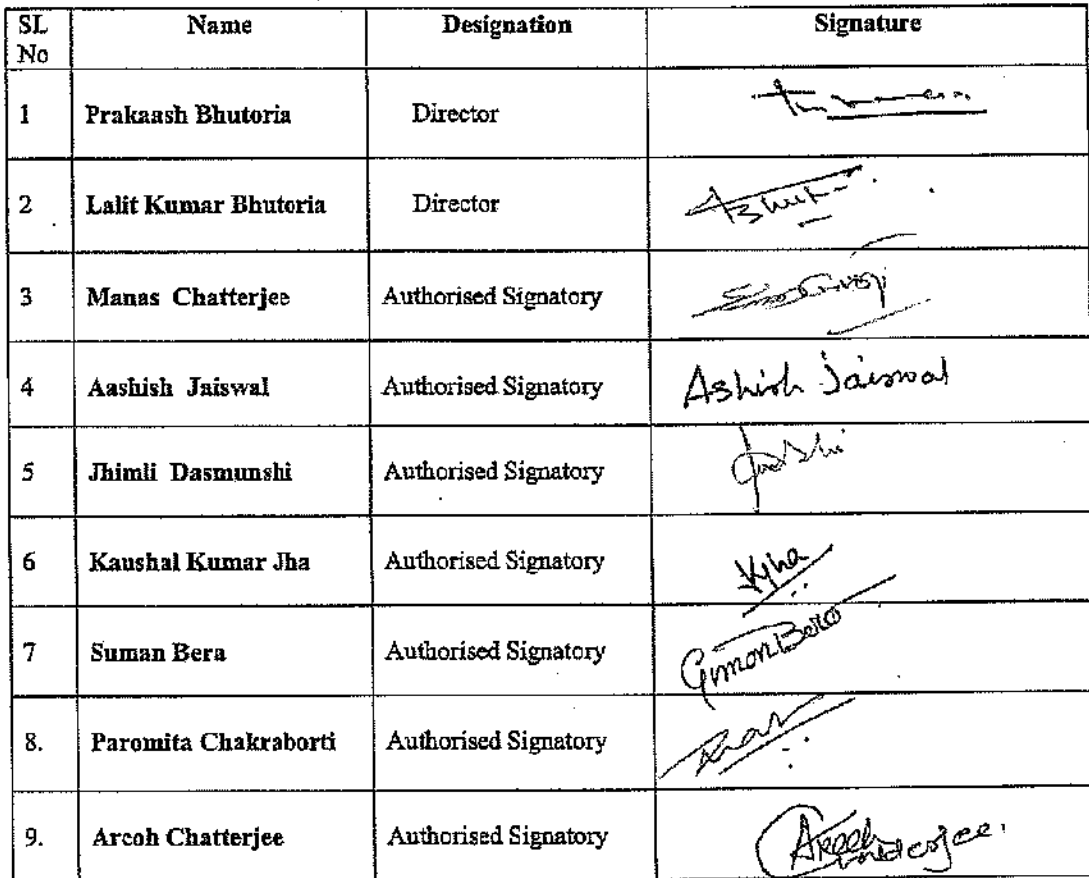 SL No Name Designation Signature
1 Prakaash Bhutoria Director
2 Lalit Kumar Bhutoria Director
3 Manas Chatterjee Authorised Signatory
4 Aashish Jaiswal Authorised Signatory Ashish Jaiswal
5 Jhimli Dasmunshi Authorised Signatory
6 Kaushal Kumar Jha Authorised Signatory KJha
7 Suman Bera Authorised Signatory Suman Bera
8. Paromita Chakraborti Authorised Signatory
9. Arcoh Chatterjee Authorised Signatory